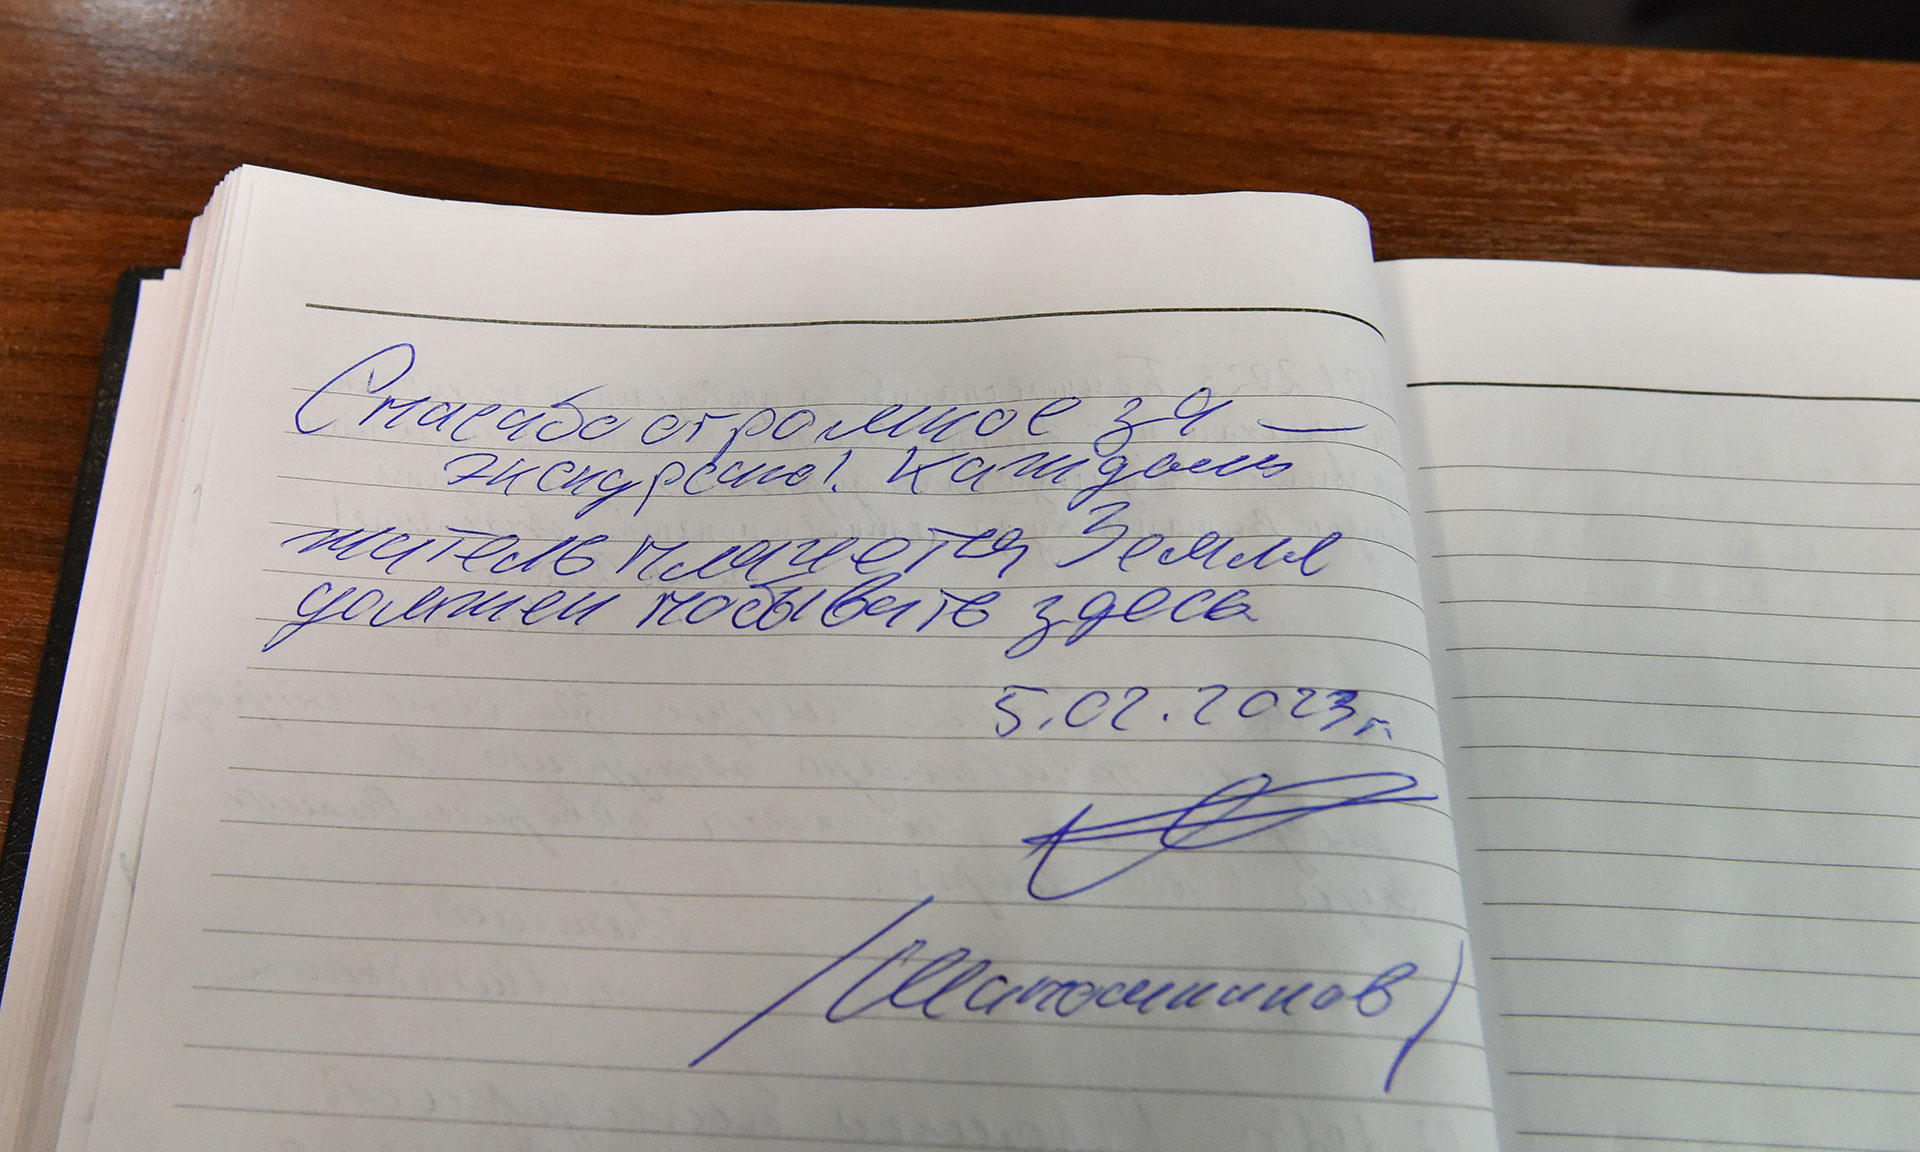 Спасибо огромное за —
экскурсию! Каждый
житель планеты Земля
должен побывать здесь
5.02.2023г.